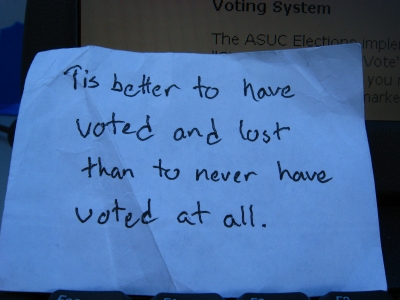 Voting System
The ASUC Elections
Vote'
you
Tis better to have
voted and lost
than to never have
voted at all.